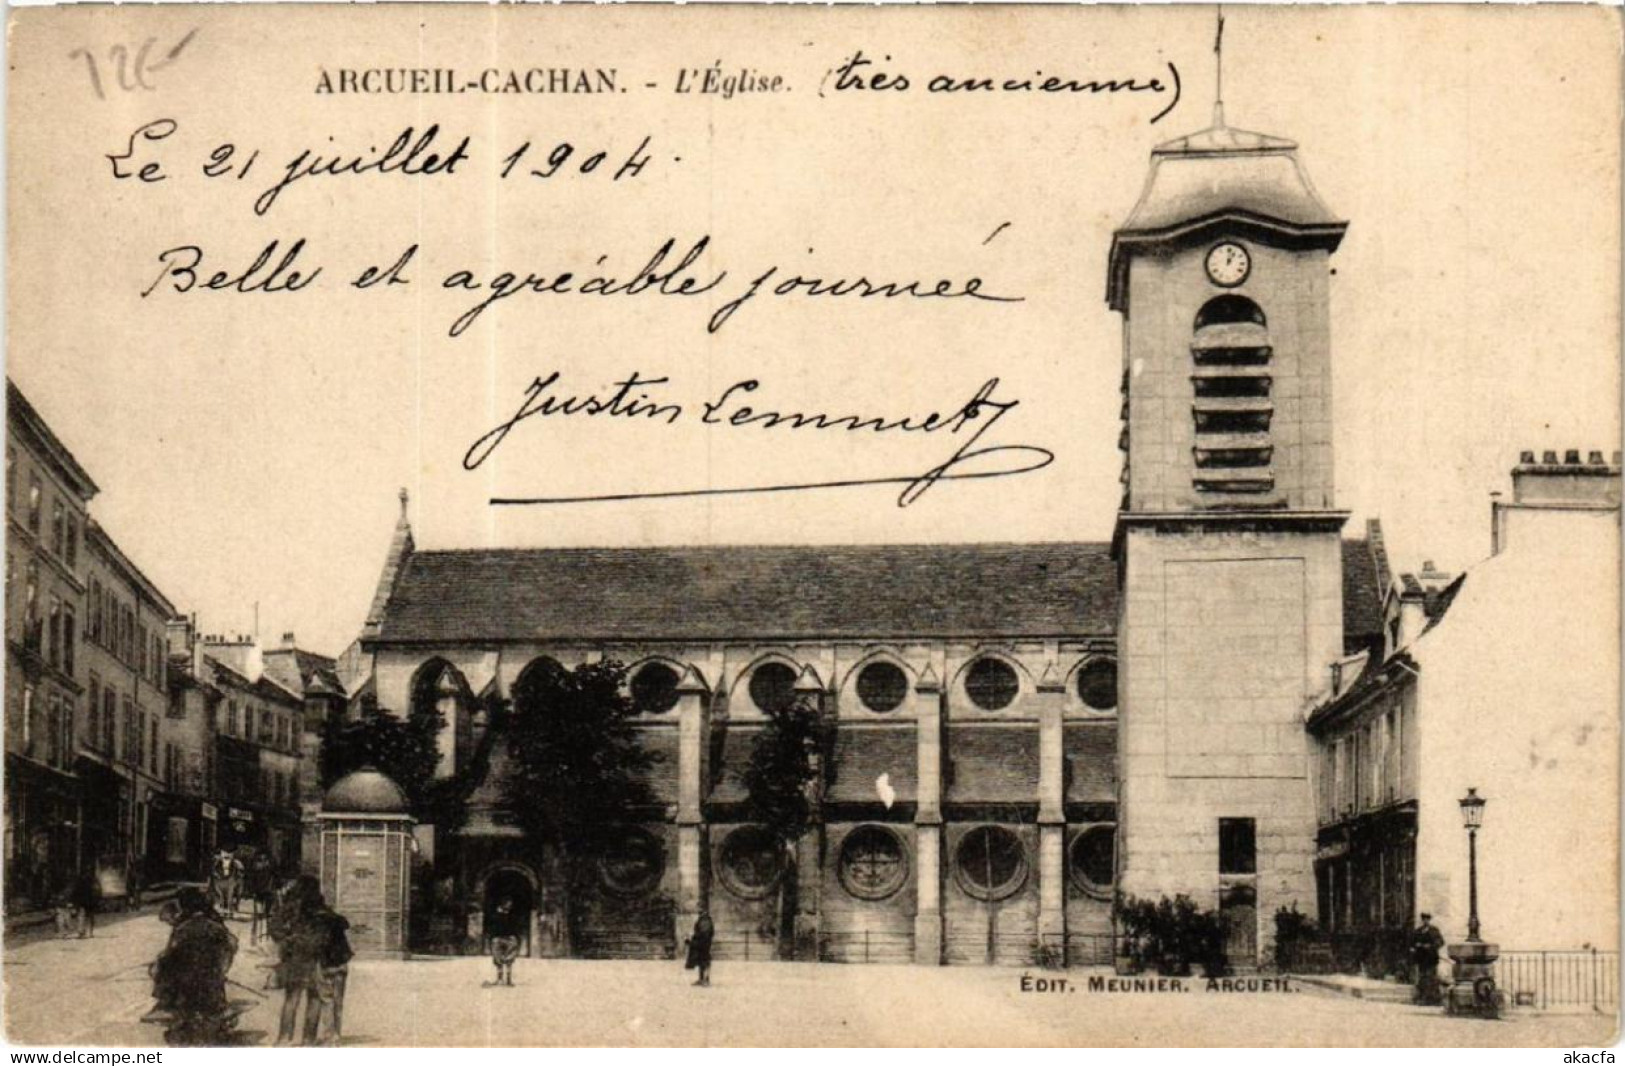 12€
ARCUEIL-CACHAN. - L'Église. (très ancienne)
Le 21 juillet 1904.
Belle et agréable journée
Justin Lemmet
ÉDIT. MEUNIER. ARCUEIL.
www.delcampe.net
akacfa